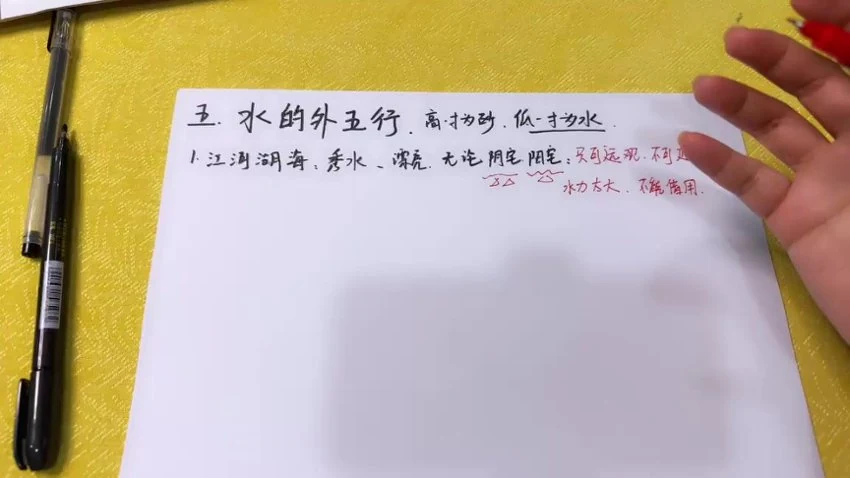 五. 水的外五行. 高一寸为砂. 低一寸为水.
1. 江河湖海: 秀水、漂亮. 无论阴宅阳宅: 只可远观. 不可
水力太大. 不能借用.